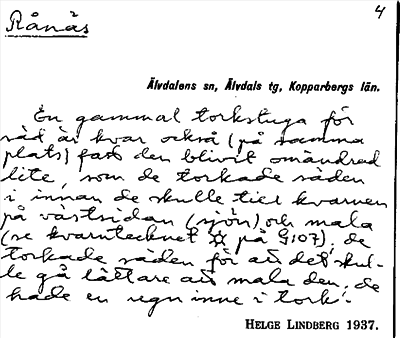 Rånäs
4
Älvdalens sn, Älvdals tg, Kopparbergs län.
En gammal torkstuga för
säd är kvar också (på samma
plats) fast den blivit omändrad
lite, som de torkade säden
i innan de skulle till kvarnen
på västsidan (sjön) och mala
(se kvarntecknet på G107), de
torkade säden för att det skul-
le gå lättare att mala den, de
hade en ugn inne i tork-
HELGE LINDBERG 1937.